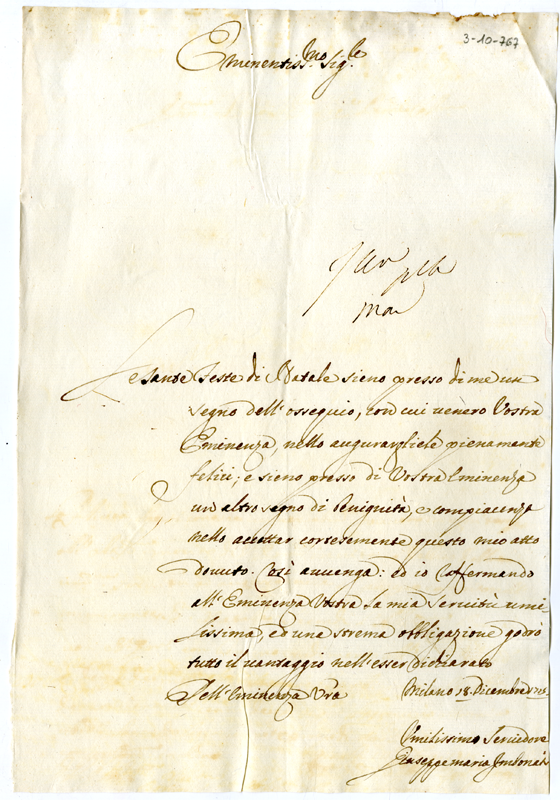 3-10-767
Eminentiss.mo Sig.re
Le sante Feste di Natale sieno presso di me un
segno dell'ossequio, con cui venero Vostra
Eminenza, nello augurargliele pienamente
felici; e sieno presso di Vostra Eminenza
un altro segno di benignità, e compiacenza
nello accettar cortesemente questo mio atto
dovuto. Così avvenga: ed io Caffermando
all'Eminenza Vostra la mia servitù umi
lissima, ed una strema obbligazione godrò
tutto il vantaggio nell'esser dichiarato
Dell'Eminenza Vra Milano 18. Dicembre
Umilissimo Servidore
Giuseppe maria